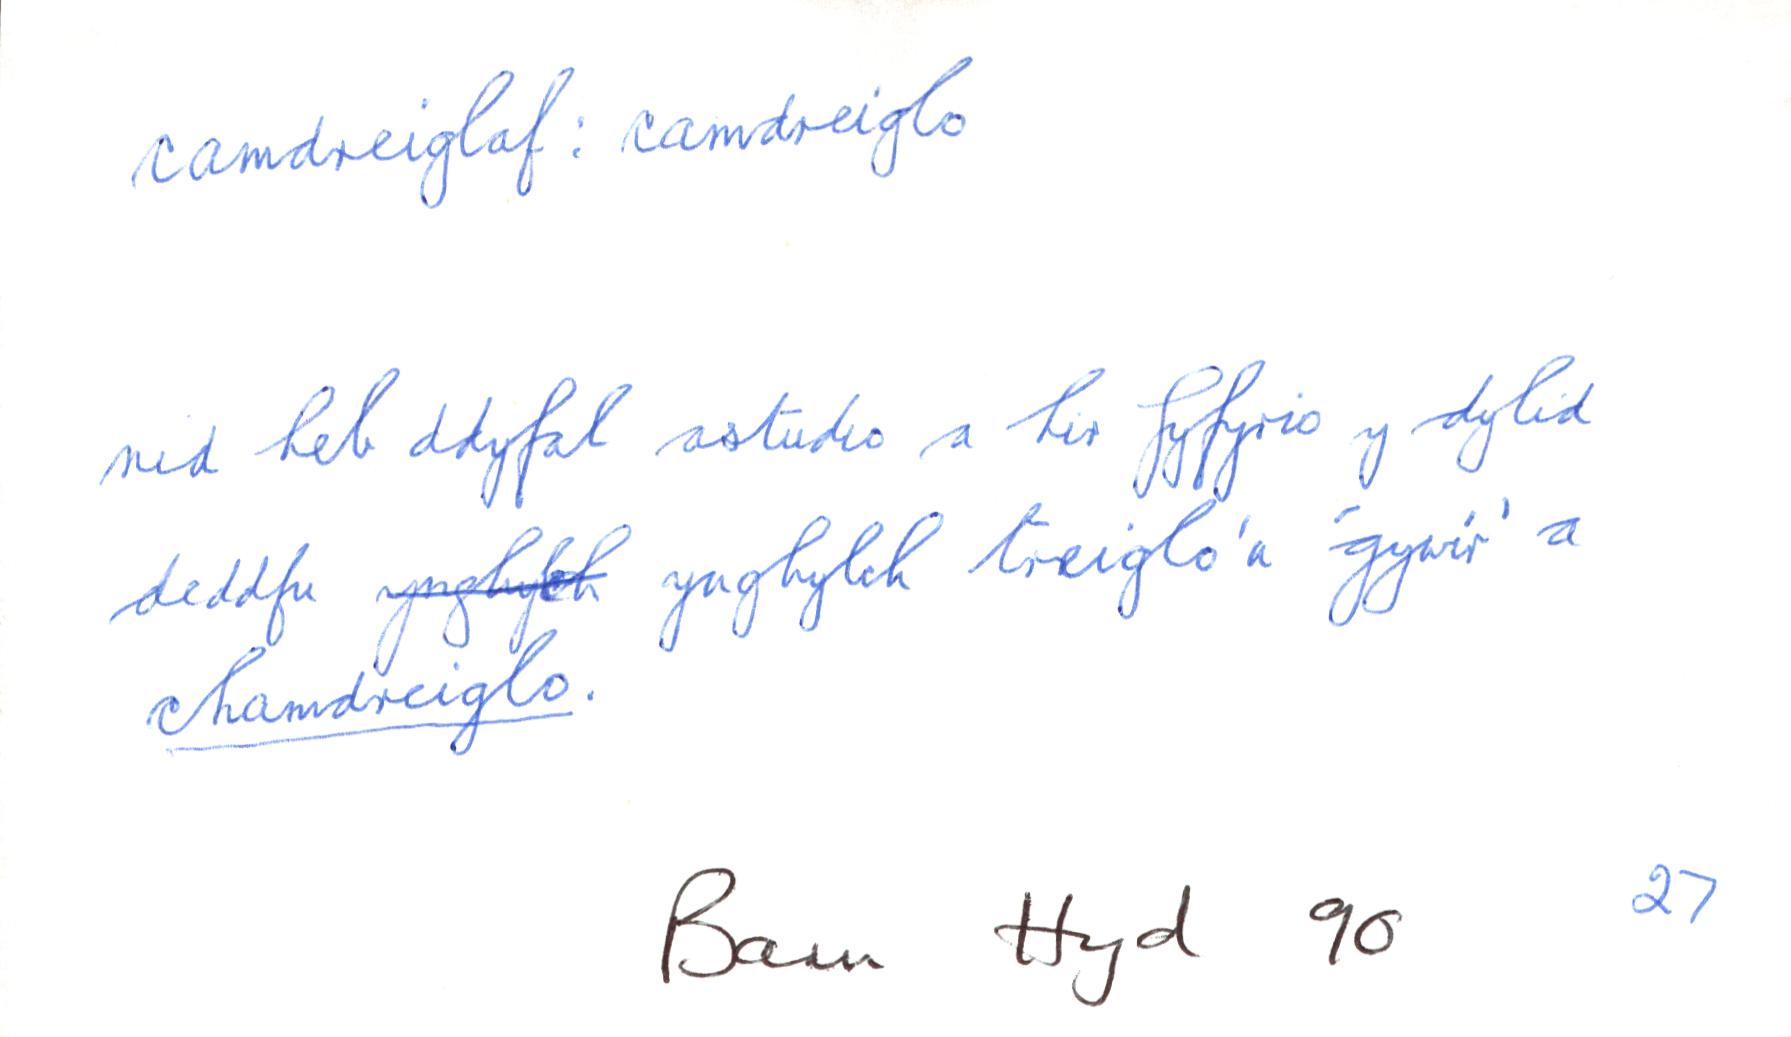 camdreiglaf: camdreiglo
nid heb ddyfal astudio a hir fyfyrio y dylid
deddfu ynghylch ynghylch treiglo'n 'gywir' a
chamdreiglo.
Barn Hyd 90 27